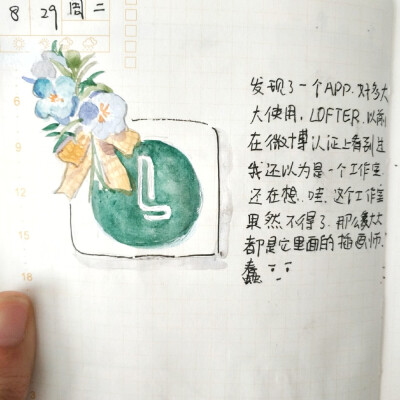 8 29 周二
6
9
12
15
18
L
发现了一个APP.好多大
大使用，LOFTER.以前
在微博认证上看到过
我还以为是一个工作室
还在想.哇.这个工作室
果然不得了.那么大大
都是它里面的插画师.
蠢